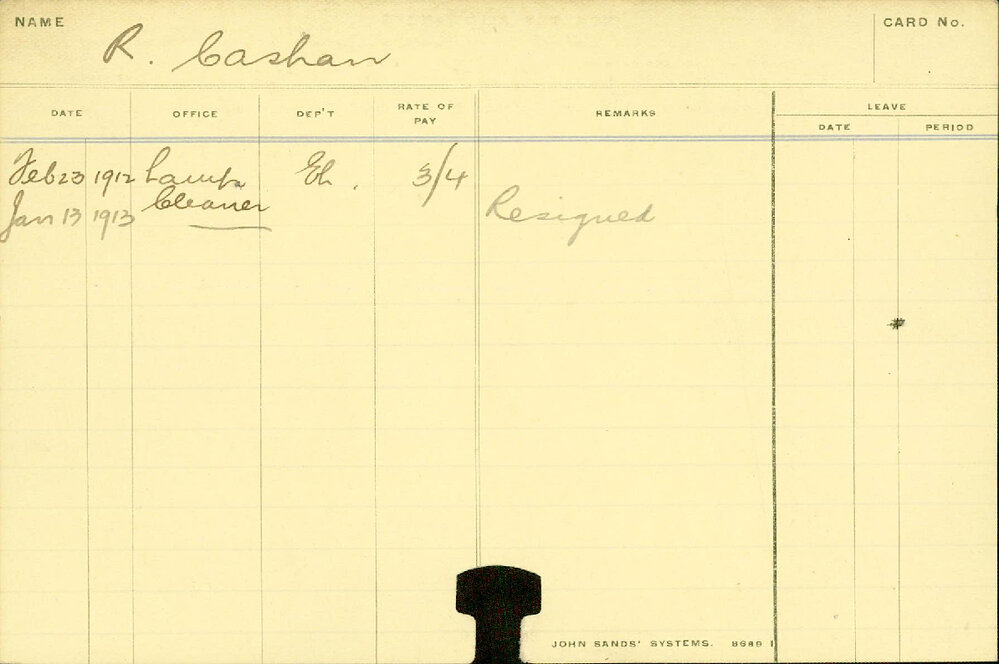 NAME
CARD No.
R. Cashan
DATE OFFICE DEP'T RATE OF PAY REMARKS LEAVE
DATE PERIOD
Feb 23 1912 Lamp Eh. 3/4
Cleaner
Jan 13 1913 Resigned
JOHN SANDS' SYSTEMS. 8689 1